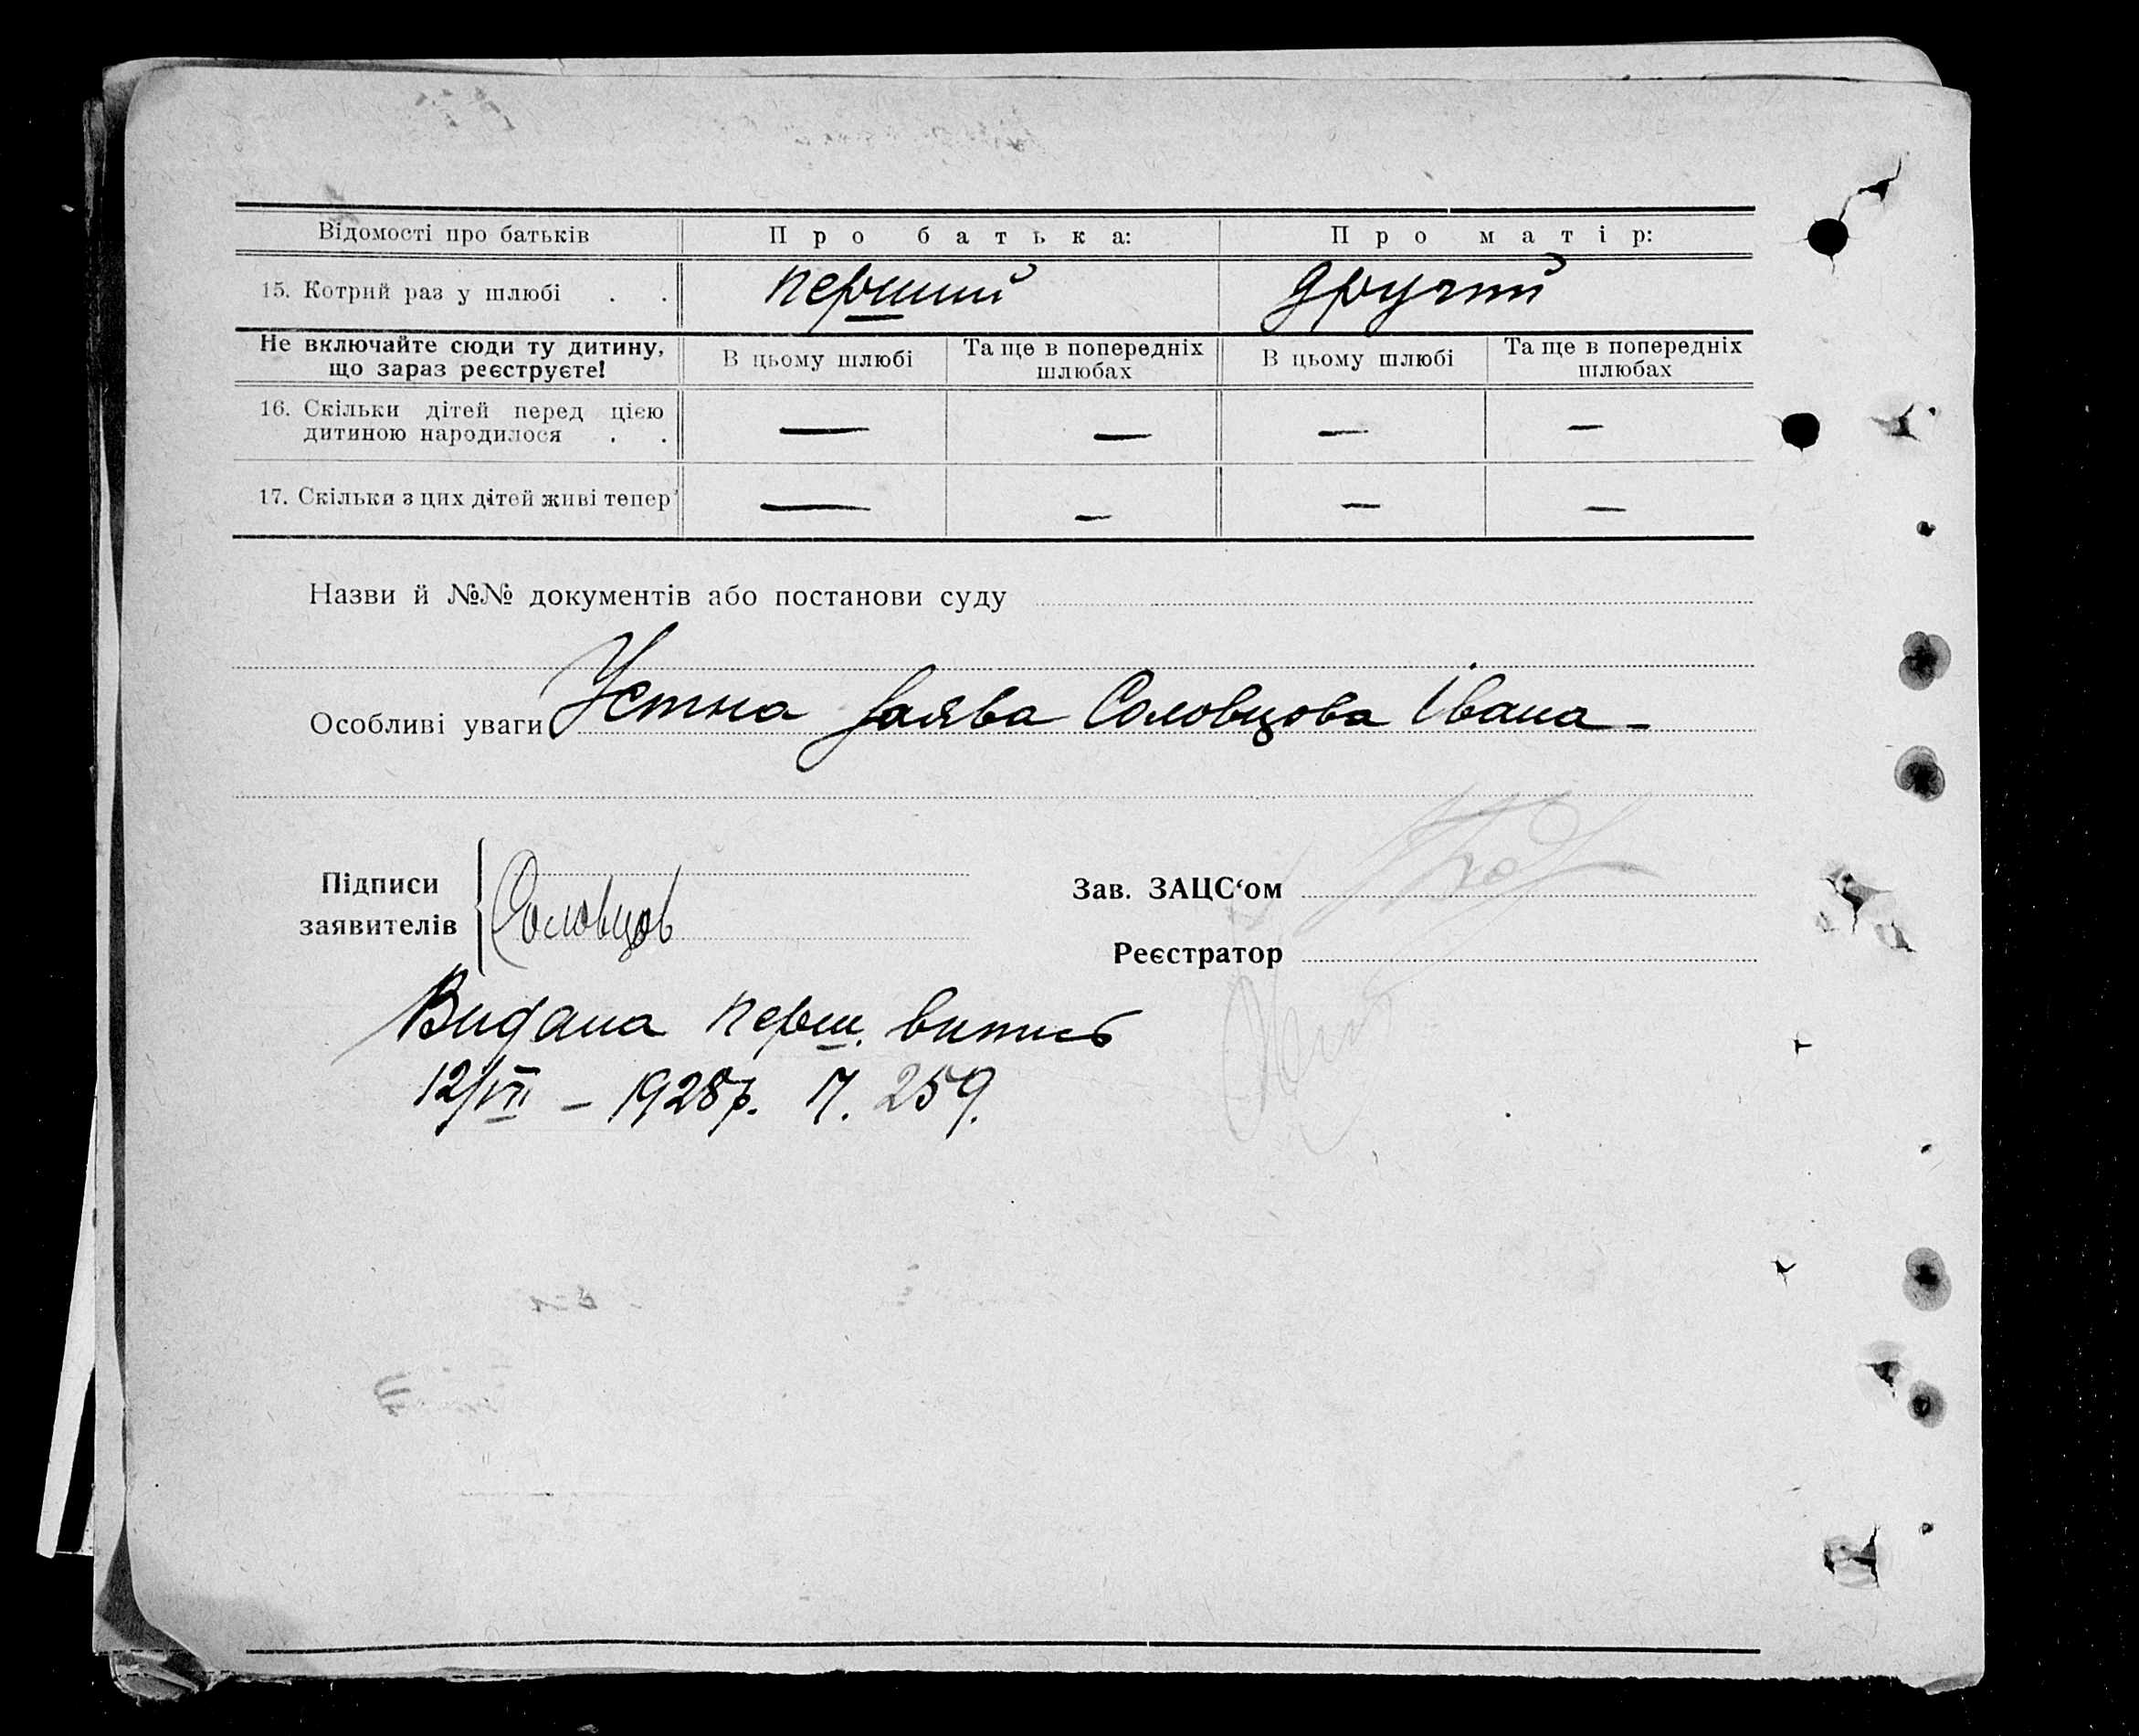 Відомості про батьків Про батька: Про матір:
15. Котрий раз у шлюбі . . перший другий
Не включайте сюди ту дитину, що зараз реєструєте! В цьому шлюбі Та ще в попередніх шлюбах В цьому шлюбі Та ще в попередніх шлюбах
16. Скільки дітей перед цією дитиною народилося . . — — — —
17. Скільки з цих дітей живі тепер — — — —
Назви й №№ документів або постанови суду
Особливі уваги Устна заява Соловцова Івана –
Підписи заявителів Соловцов
Зав. ЗАЦС‘ом
Реєстратор
Видана перш. витись
12/VII – 1928р. П. 259.